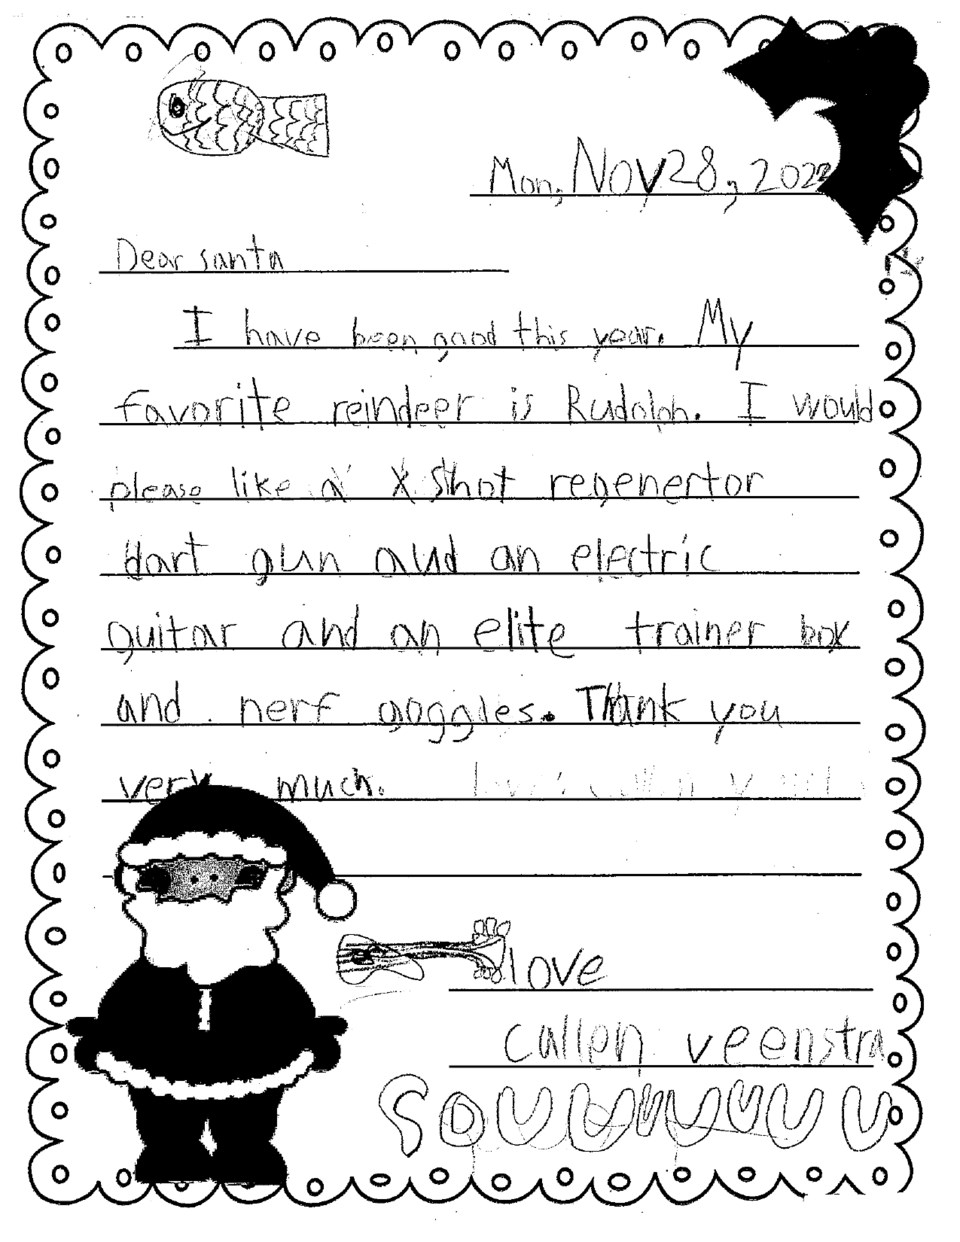 Mon, Nov 28, 2022
Dear santa
I have been good this year. My
favorite reindeer is Rudolph. I would
please like a X Shot regenertor
dart gun and an electric
guitar and an elite trainer box
and nerf goggles. Thank you
very much.
love
callen veenstra